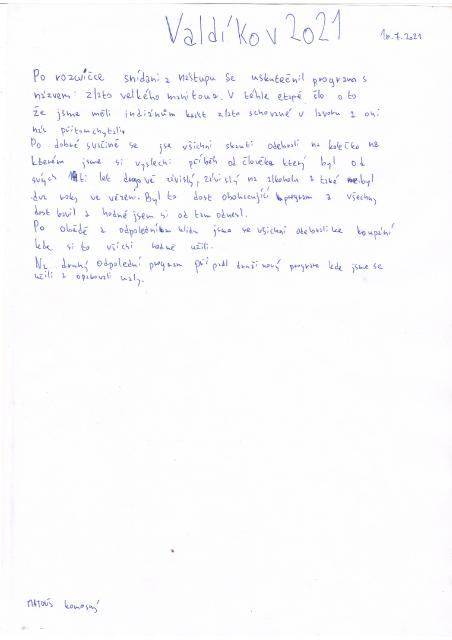 Valdíkov 2021
10.7.2021
Po rozcvičce snídani a nástupu se uskutečnil program s
názvem: zlato velkého manitoua. V téhle etapě šlo o to
že jsme měli indiánům krást zlato schované v lavoru a oni
nás přitom chytali.
Po dobré svačině se jsme všichni skauti odebrali na kolečko na
kterém jsme si vyslechli příběh od člověka který byl od
svých ti let drogově závislý, závislý na alkoholu a také byl
dva roky ve vězení. Byl to dost obohacující program a všechny
dost bavil a hodně jsem si od tam odnesl.
Po obědě a odpoledním klidu jsme se všichni odebrali ke koupání
kde si to všichi hodně užili.
Na druhý odpolední program připadl družinový program kde jsme se
učili a opakovali uzly.
MATOUŠ